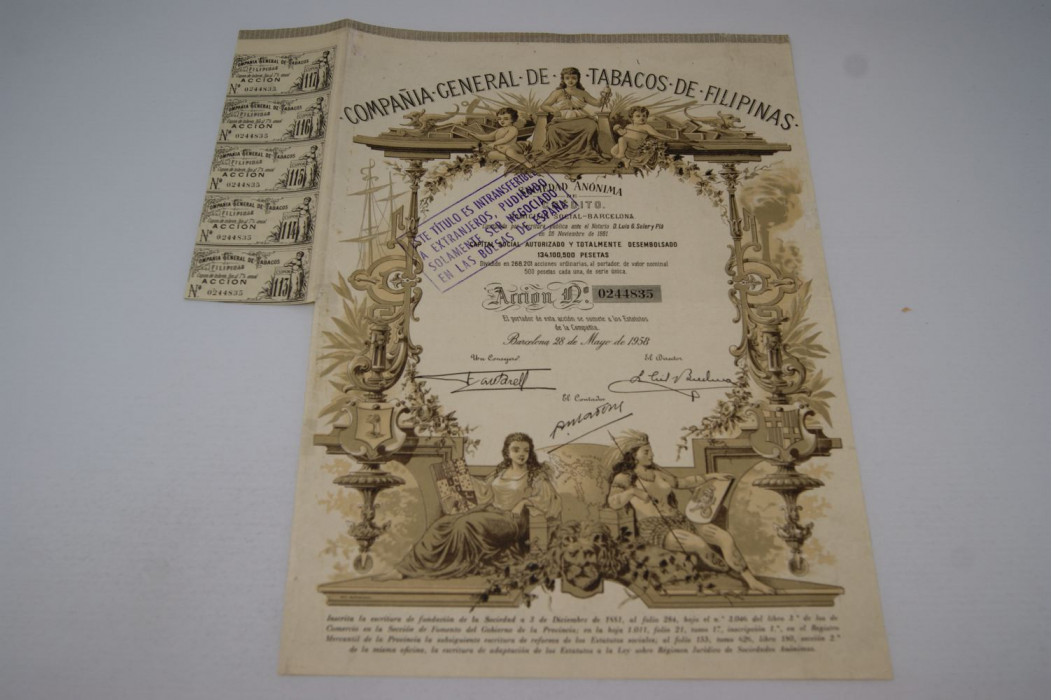 COMPAÑIA·GENERAL·DE·TABACOS·DE·FILIPINAS·
SOCIEDAD ANÓNIMA
DE
CRÉDITO.
DOMICILIO SOCIAL-BARCELONA
pública ante el Notario D. Luis G. Soler y Plá
26 Noviembre de 1881.
CAPITAL SOCIAL AUTORIZADO Y TOTALMENTE DESEMBOLSADO
134,100,500 PESETAS
Dividido en 268,201 acciones ordinarias, al portador, de valor nominal
500 pesetas cada una, de serie única.
Acción Nº 0244835
El portador de esta acción se somete a los Estatutos
de la Compañía.
Barcelona, 28 de Mayo de 1958
Un Consejero El Director
El Contador
ESTE TÍTULO ES INTRANSFERIBLE
A EXTRANJEROS, PUDIENDO
SOLAMENTE SER NEGOCIADO
EN LAS BOLSAS DE ESPAÑA
COMPAÑIA GENERAL DE TABACOS
FILIPINAS
ACCIÓN
Nº 0244835
117
COMPAÑIA GENERAL DE TABACOS
FILIPINAS
ACCIÓN
Nº 0244835
116
COMPAÑIA GENERAL DE TABACOS
FILIPINAS
ACCIÓN
Nº 0244835
115
COMPAÑIA GENERAL DE TABACOS
FILIPINAS
ACCIÓN
Nº 0244835
114
COMPAÑIA GENERAL DE TABACOS
FILIPINAS
ACCIÓN
Nº 0244835
113
Inscrita la escritura de fundación de la Sociedad a 2 de Diciembre de 1881, al folio 294, bajo el n.º 2.046 del libro 3.º de los de
Comercio en la Sección de Fomento del Gobierno de la Provincia; en la hoja 1.011, folio 21, tomo 17, inscripción 1.ª, en el Registro
Mercantil de la Provincia la subsiguiente escritura de reforma de los Estatutos sociales; al folio 153, tomo 828, libro 180, sección 2.ª
de la misma oficina, la escritura de adaptación de los Estatutos a la Ley sobre Régimen Jurídico de Sociedades Anónimas.